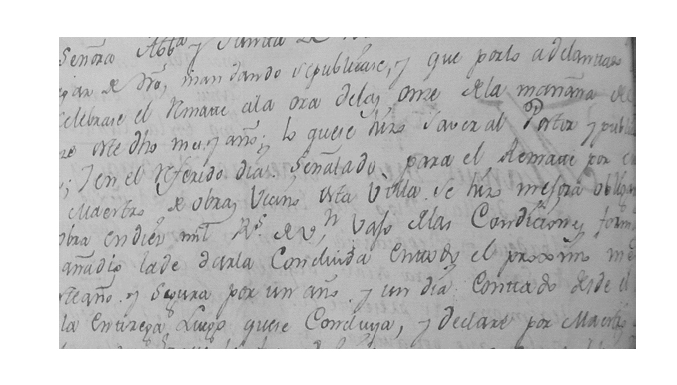 Señora Abba y Junta de
lugar de dro, mandando se publicase, y que por lo adelantado
celebrase el Remate ala ora delas once dela mañana del
este dho mes y año; lo quese hizo saver al Portor y publi
; y en el referido dia señalado para el Remate por
Maestro de obras, vecino esta villa se hizo mejora obligan
obra en diez mil Rs. de vn, vajo delas Condiciones form
añadio lade darla Concluida entodo el proximo me
esteaño, y segura por un año y un dia contado desde el
la entrega luego quese Concluya, y declare por Maestro